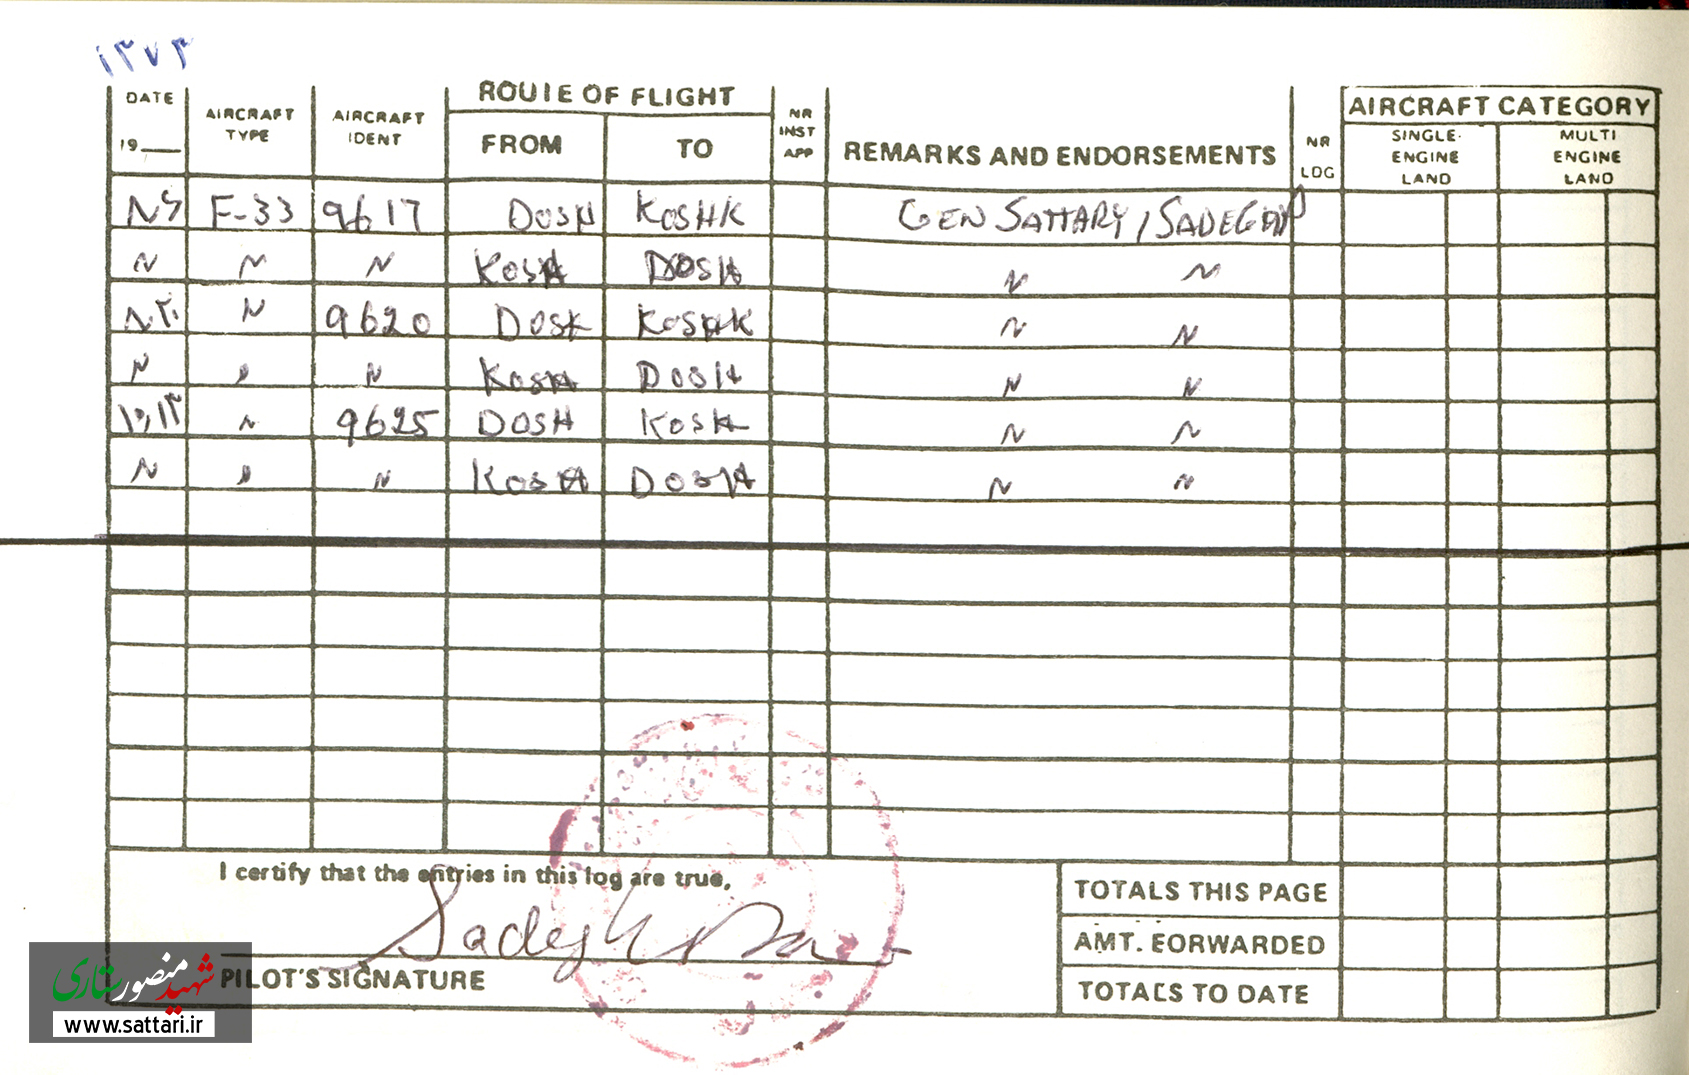 ۱۳۷۳
DATE
19
AIRCRAFT
TYPE
AIRCRAFT
IDENT
ROUTE OF FLIGHT
FROM
TO
NR
INST
APP
REMARKS AND ENDORSEMENTS
NR
LDG
AIRCRAFT CATEGORY
SINGLE-
ENGINE
LAND
MULTI
ENGINE
LAND
F-33 9617 DOSH KOSHK GEN SATTARY / SADEGHP
KOSH DOSH
۸,۲۰ 9620 DOSK KOSHK
KOSH DOSH
۱۰,۱۳ 9625 DOSH KOSH
KOSH DOSH
I certify that the entries in this log are true,
PILOT'S SIGNATURE
TOTALS THIS PAGE
AMT. FORWARDED
TOTALS TO DATE
شهید منصور ستاری
www.sattari.ir